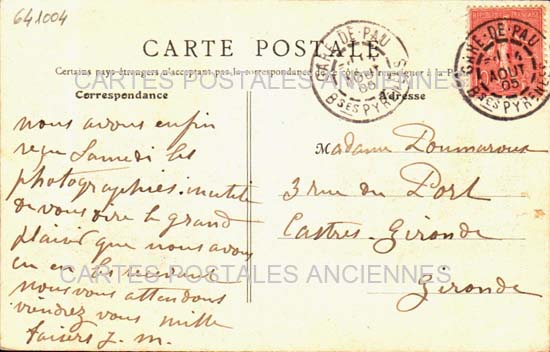 641004
CARTE POSTALE
Certains pays étrangers n'acceptant pas la correspondance
Correspondance
Adresse
GARE-DE-PAU
AOUT
05
BSES PYRENEES
GARE-DE-PAU
AOUT
05
BSES PYRENEES
CARTES POSTALES ANCIENNES
nous avons enfin
reçu Samedi les
photographies. inutile
de vous dire le grand
plaisir que nous avons
eu en les
nous vous attendons
vendrez vous mille
baisers J. M.
Madame Doumaroux
3 rue du Port
Castres-Gironde
Gironde
CARTES POSTALES ANCIENNES